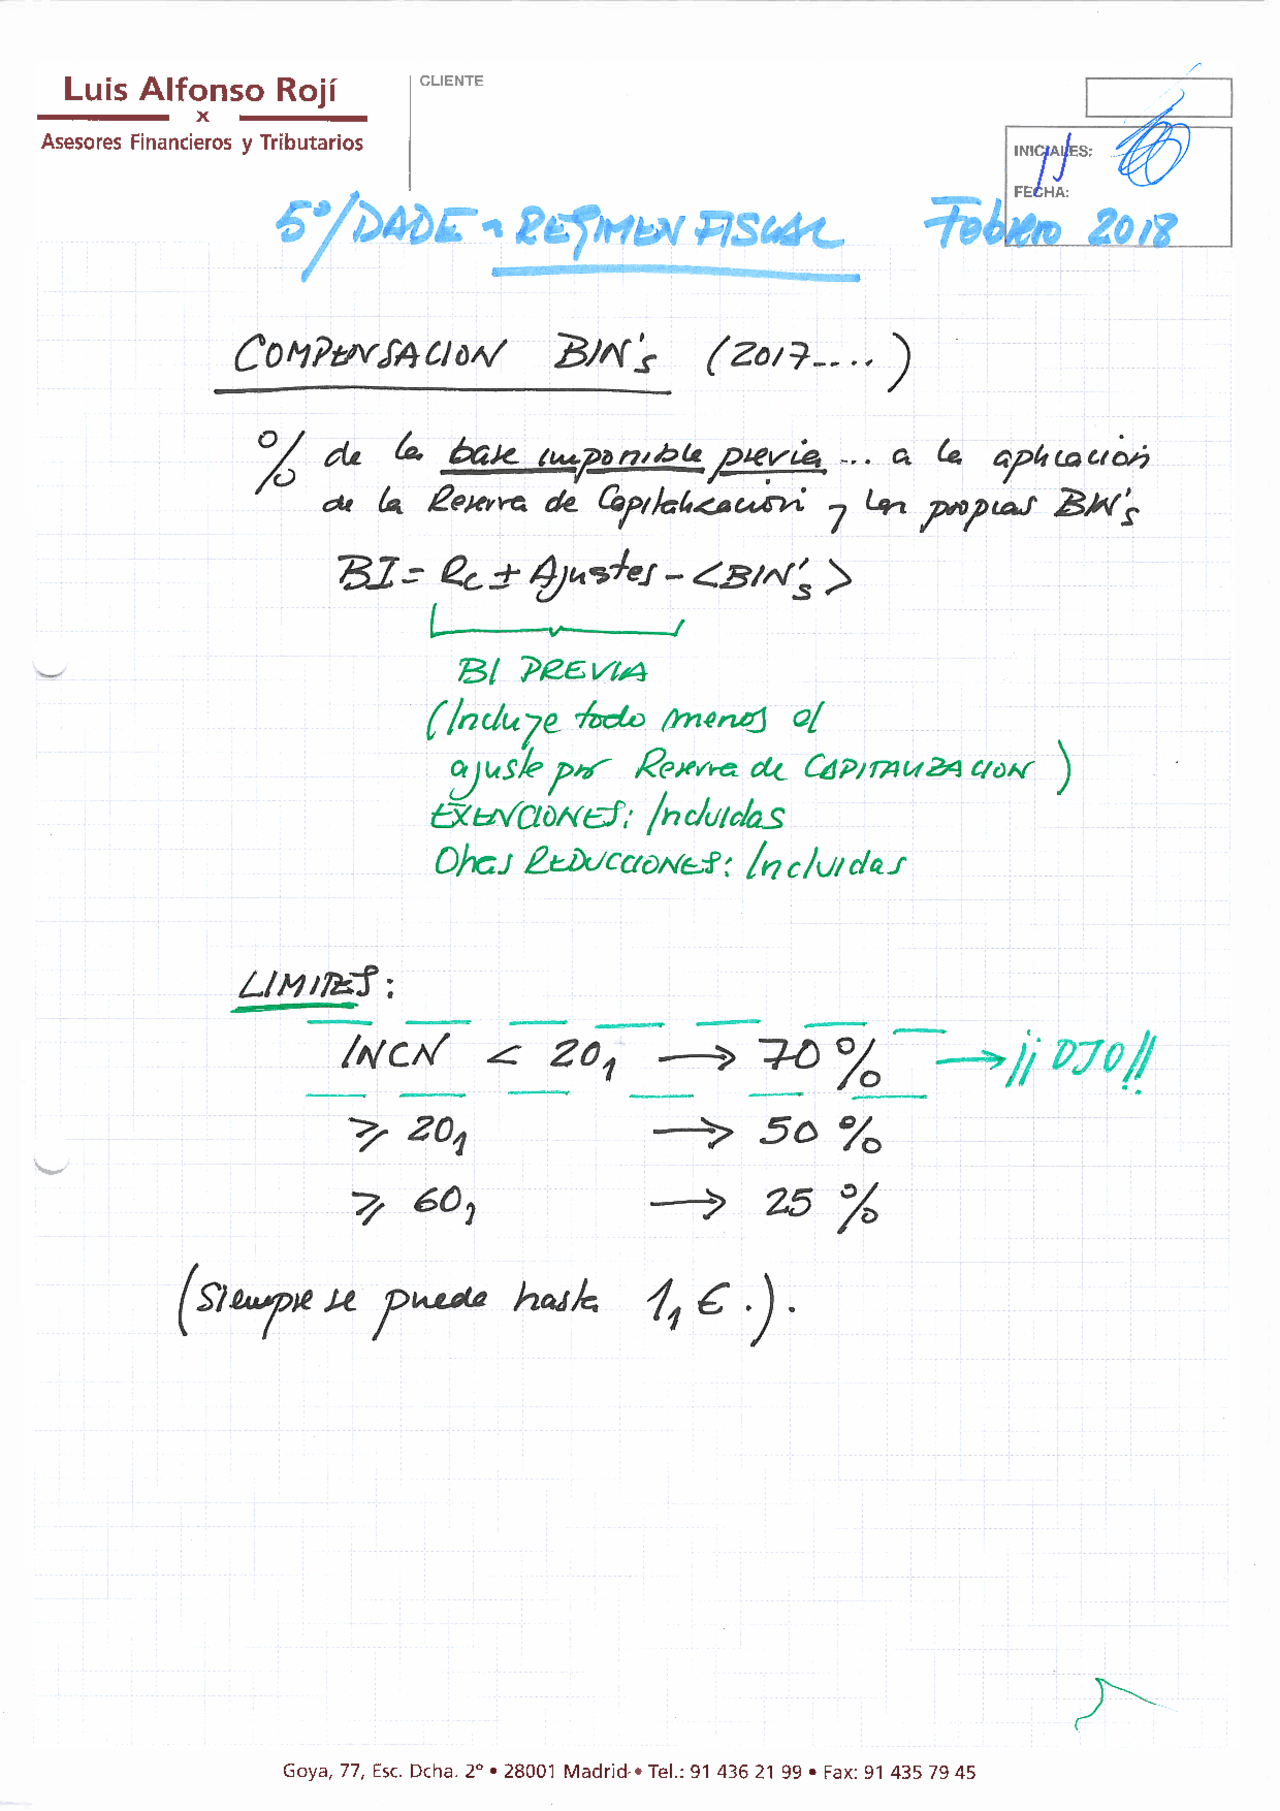 Luis Alfonso Rojí
x
Asesores Financieros y Tributarios
CLIENTE
INICIALES:
FECHA:
5º/DADE - REGIMEN FISCAL Febrero 2018
COMPENSACION BIN's (2017....)
% de la base imponible previa... a la aplicación
de la Reserva de Capitalización y las propias BIN's
BI = Rc ± Ajustes - <BIN's>
BI PREVIA
(Incluye todo menos el
ajuste por Reserva de CAPITALIZACION)
EXENCIONES: Incluidas
Otras REDUCCIONES: Incluidas
LIMITES:
INCN < 20, → 70% → ¡¡OJO!!
≥ 20, → 50%
≥ 60, → 25%
(Siempre se puede hasta 1, €.).
Goya, 77, Esc. Dcha. 2º • 28001 Madrid • Tel.: 91 436 21 99 • Fax: 91 435 79 45